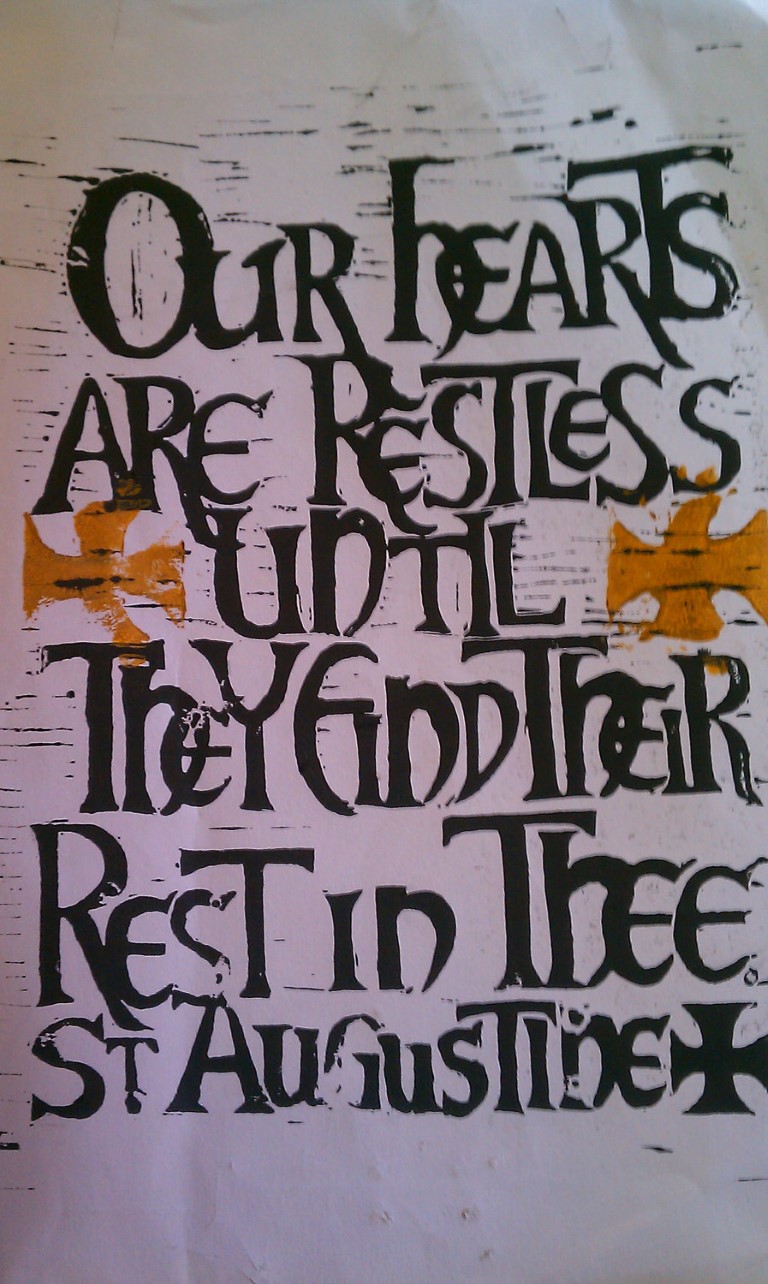 Our hearts
are restless
until
they find their
rest in thee.
St Augustine